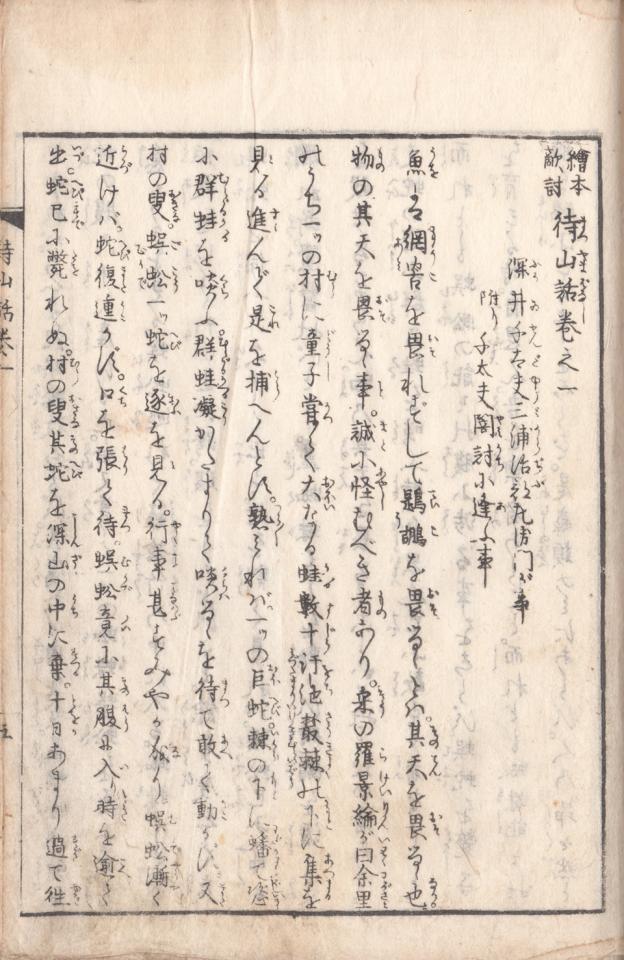 繪本
敵討
待山話卷之一
深井千太夫三浦治部左衛門が事
附り千太夫闇討小逢ふ事
魚ハ網害を畏れずして鵜鶘を畏るゝとハ。其天を畏るゝ也。
物の其天を畏るゝ事。誠小怪むべき者あり。宋の羅景綸が曰余里
のうち一ッの村に童子嘗て大なる蛙数十汙池叢棘の下に集を
見る進んで是を捕へんとす。熟みれバ一ッの巨蛇棘の下に蟠て恣
小群蛙を啖ふ。群蛙凝かたまりて啖るゝを待て敢て動かず。又
村の叟。蜈蚣一ッ蛇を逐を見る。行事甚すみやか成り蜈蚣漸く
近けバ。蛇復逃かず。口を張て待。蜈蚣竟小其腹に入り時を逾て
出。蛇已小斃れぬ。村の叟其蛇を深山の中に棄。十日あまり過て徃
待山話卷一
五